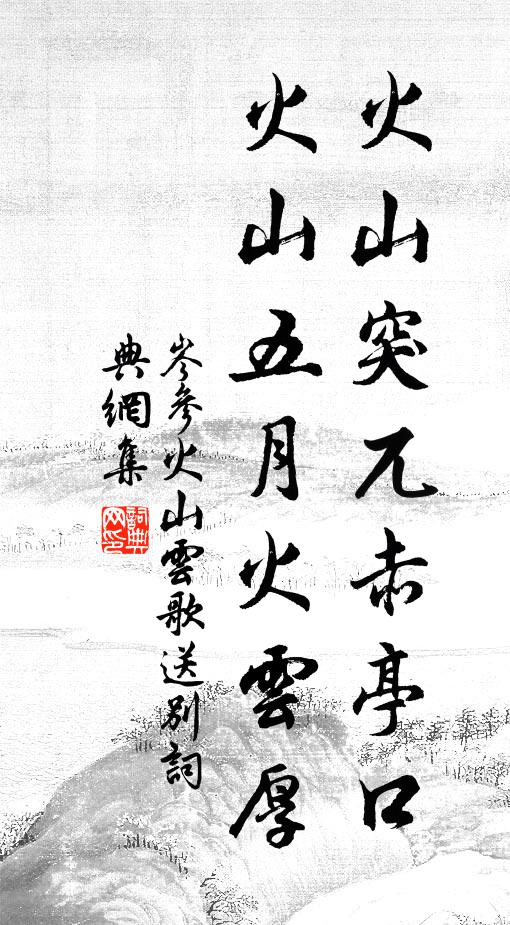 火山突兀赤亭口
火山五月火雲厚
岑參火山雲歌送別詞
典網集
詞典网印